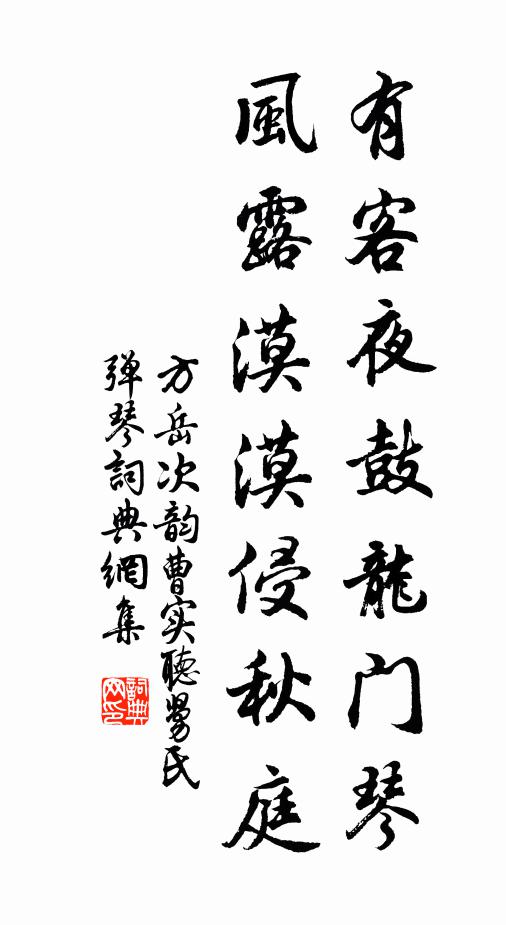 有客夜鼓龍门琴
風露漠漠侵秋庭
方岳次韵曹实聽舅氏
弹琴詞典網集
詞典网印